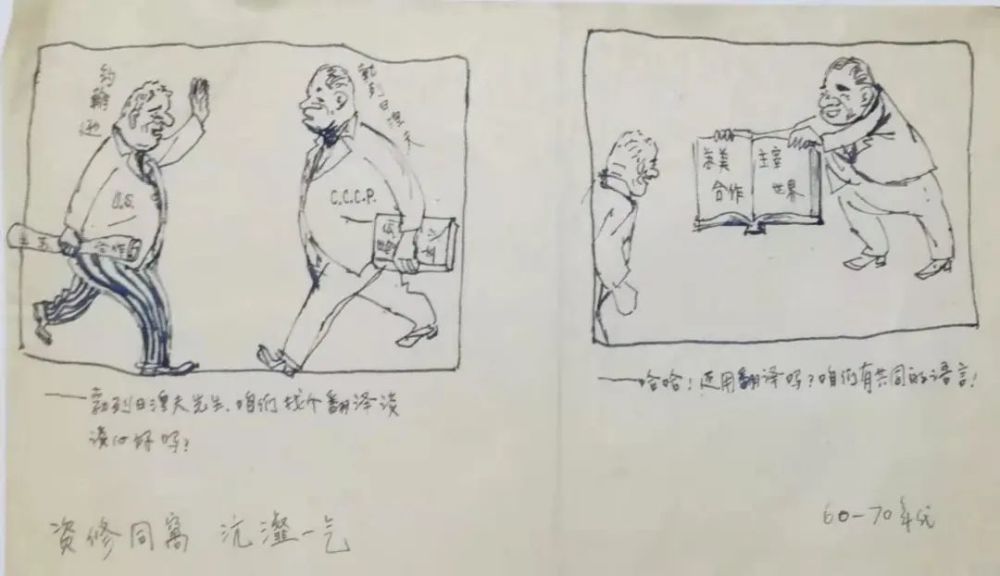 约翰逊
勃列日涅夫
U.S.
C.C.C.P.
合作
苏美
合作
主宰
世界
——勃列日涅夫先生,咱们找个翻译谈
谈心好吗?
——哈哈!还用翻译吗?咱们有共同的语言!
资修同窝 沆瀣一气
60-70年代